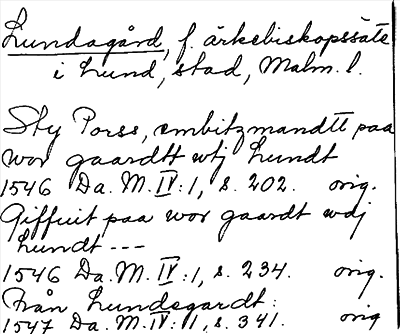 Lundagård, f. ärkebiskopssäte
i Lund, stad, Malm. l.
Sty Porss, embitzmandtt paa
wor gaardtt wtj Lundt
1546 Da. M. IV:1, s. 202. orig.
Giffuit paa wor gaardt wdj
Lundt ---
1546 Da. M. IV:1, s. 234. orig.
Från Lundsgardt:
1547 Da. M. IV:II, s. 341. orig